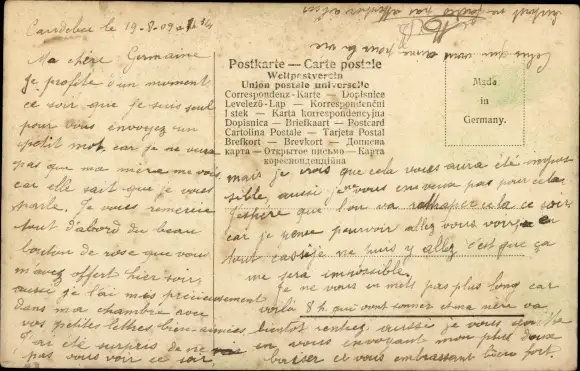 Caudebec le 19-8-09
Ma chère Germaine
Je profite d'un moment
ce soir que je suis seul
pour vous envoyez un
petit mot car je ne veux
pas que ma mère me voie
car elle sait que je vous
parle. Je vous remercie
tout d'abord du beau
bouton de rose que vous
m'avez offert hier soir,
aussi je l'ai mis précieusement
dans ma chambre avec
vos petites lettres bien-aimées.
J'ai été surpris de ne
pas vous voir ce soir
Postkarte — Carte postale
Weltpostverein
Union postale universelle
Correspondenz-Karte — Dopisnice
Levelező-Lap — Korrespondenční
listek — Karta korrespondencyjna
Dopisnica — Briefkaart — Postcard
Cartolina Postale — Tarjeta Postal
Brefkort — Brevkort — Дописна
карта — Открытое письмо — Карта
кореспонденційна
Made
in
Germany.
mais je crois que cela vous aura été impos-
sible, aussi je vous en veux pas pour cela.
J'espère que l'on va rattraper cela ce soir
car je pense pouvoir allez vous voir, en
tout cas si je ne puis y allez c'est que ça
me sera impossible.
Je ne vous en mets pas plus long car
voilà 8h qui vont sonner et ma mère va
bientôt rentrez aussi je vous quitte
en vous envoyant mon plus doux
baiser et vous embrassant bien fort.
Celui qui vous aime pour la vie